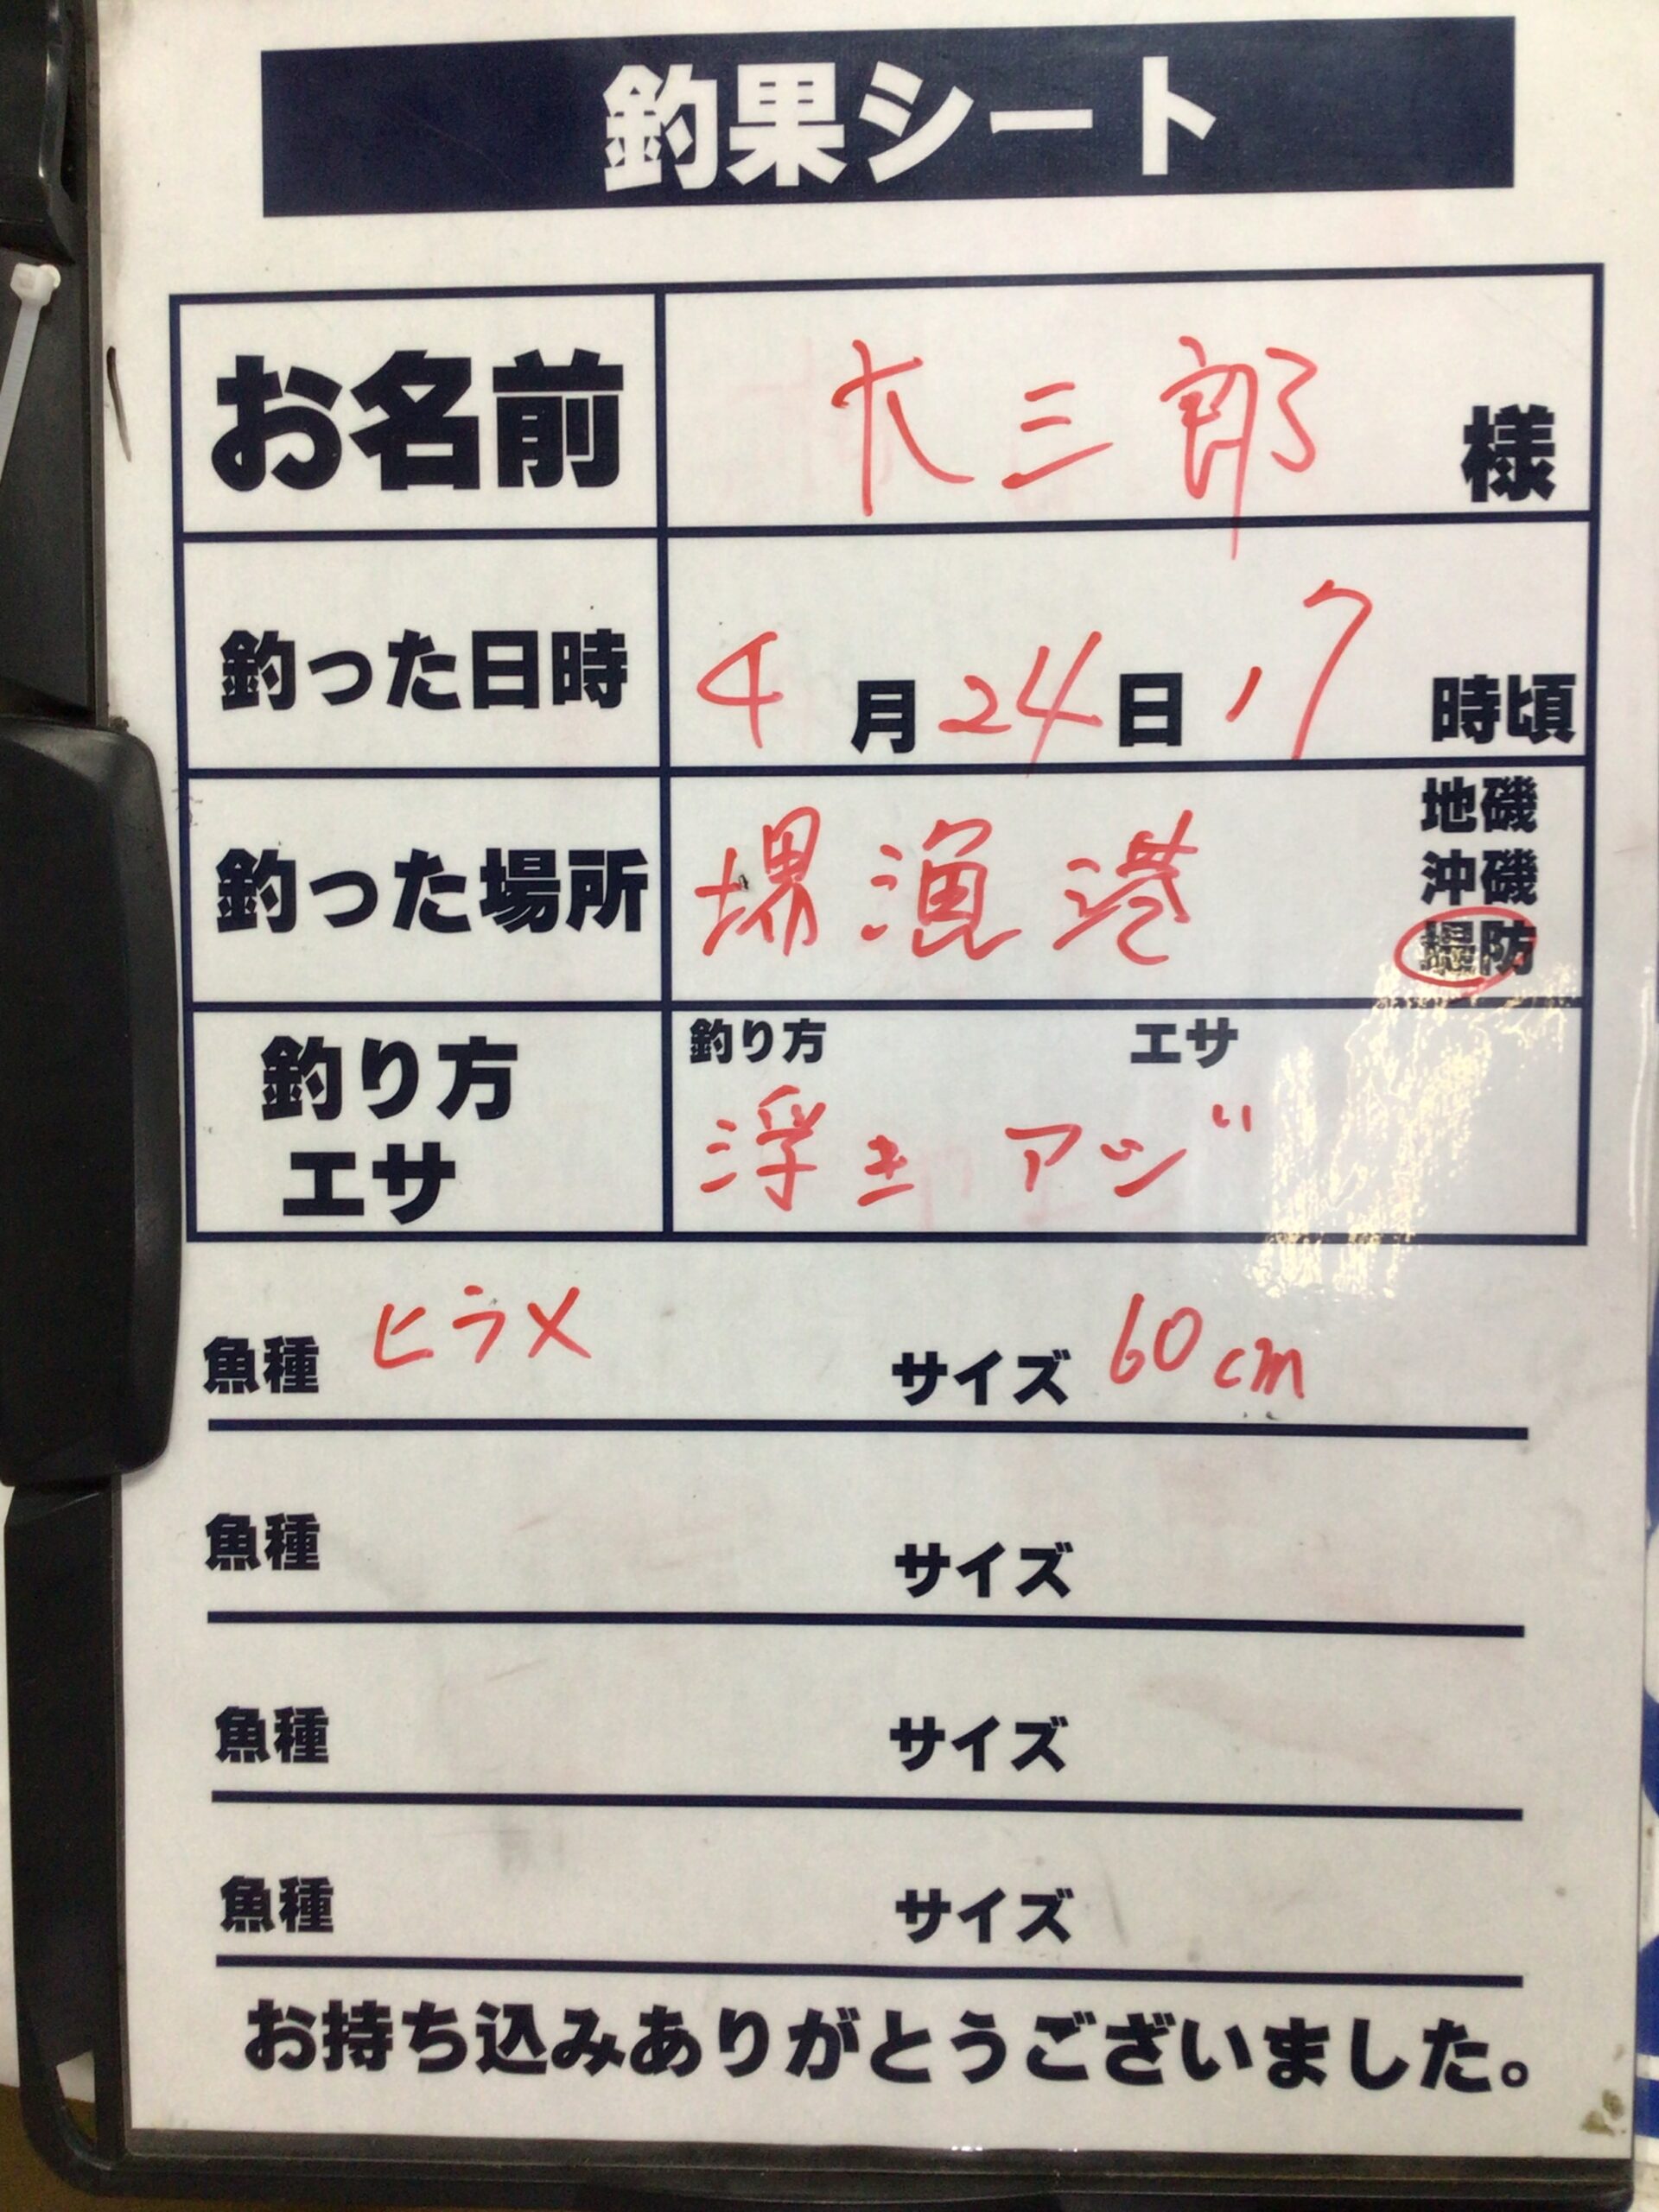 釣果シート
お名前 大三郎 様
釣った日時 4月24日17時頃
釣った場所 堺漁港 地磯 沖磯 堤防
釣り方 エサ
釣り方 エサ
浮き アジ
魚種 ヒラメ サイズ 60cm
魚種 サイズ
魚種 サイズ
魚種 サイズ
お持ち込みありがとうございました。